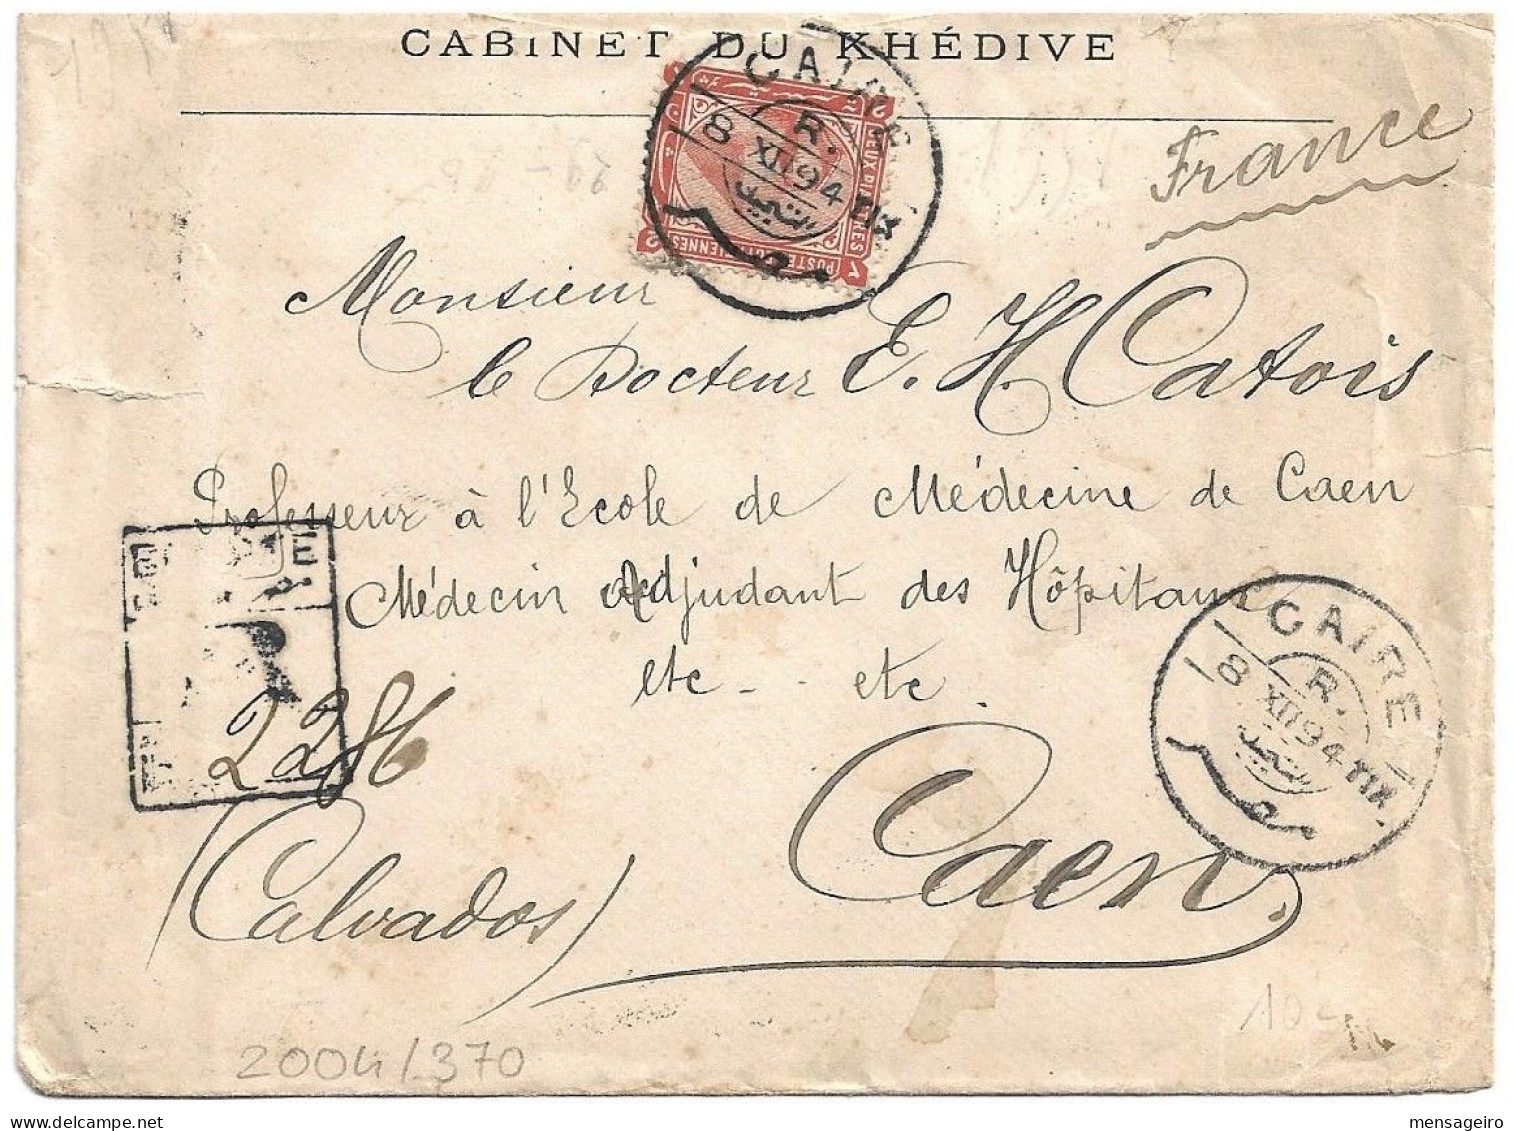 CABINET DU KHÉDIVE
France
CAIRE
R.
8 XII 94
DEUX PIASTRES
POSTES EGYPTIENNES
2
Monsieur
le Docteur E. H. Catois
Professeur à l'Ecole de Médecine de Caen
Médecin Adjudant des Hôpitaux
etc - - etc.
CAIRE
R.
8 XII 94
R
2286
Caen.
(Calvados)
10-
2004/370
mensageiro.com